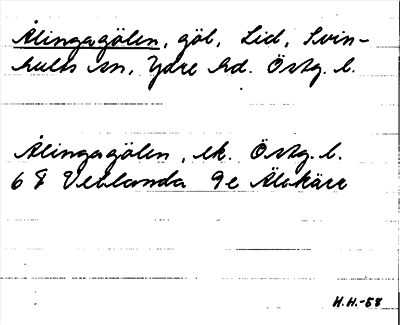 Ålingagölen, göl, Lid, Svin-
hults sn, Ydre hd. Östg. l.
Ålingagölen, ek. Östg. l.
6 F Vetlanda 9e Älekärr
H.H.-58